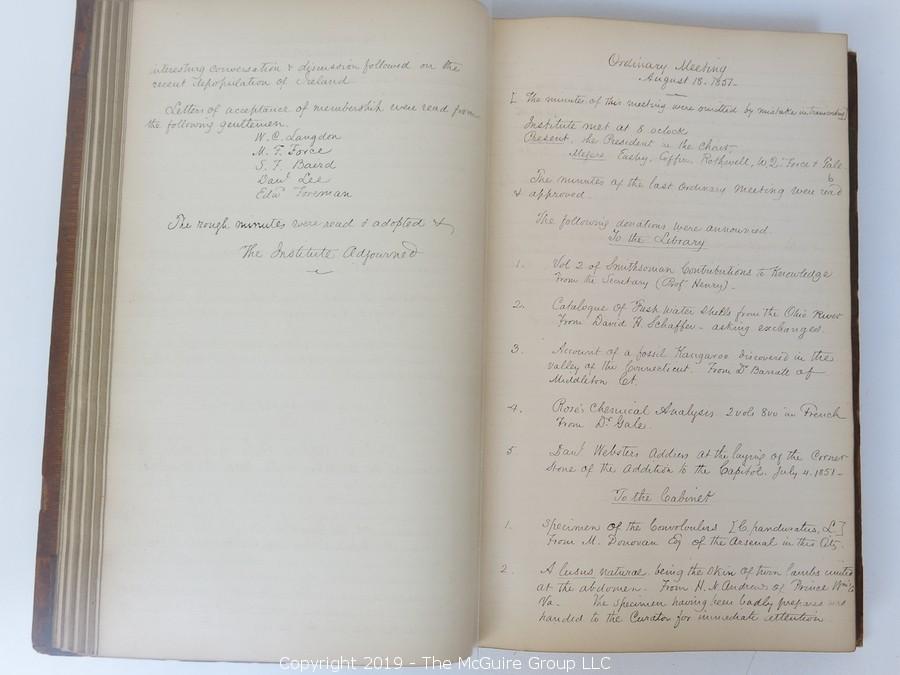 interesting conversation & discussion followed on the
recent depopulation of Ireland
Letters of acceptance of membership were read from
the following gentlemen.
W. C. Langdon
M. F. Force
S. F. Baird
Danl Lee
Edwd Foreman
The rough minutes were read & adopted &
The Institute Adjourned
Ordinary Meeting
August 18. 1851.
[ The minutes of this meeting were omitted by mistake in transcribing
Institute met at 8 oclock
Present, the President in the Chair
Messrs Easby, Coffin, Rothwell, W. Q. Force & Gale
The minutes of the last Ordinary Meeting were read
& approved.
The following donations were announced.
To the Library
1. Vol 2 of Smithsonian Contributions to Knowledge
From the Secretary (Prof Henry) -
2. Catalogue of Fresh water shells from the Ohio River
From David H. Schaffer - asking exchanges.
3. Account of a fossil Kangaroo discovered in the
valley of the Connecticut. From Dr Barratt of
Middleton Ct.
4. Rose's Chemical Analysis 2 vols 8vo in French
From Dr Gale.
5 Danl Websters Address at the laying of the Corner
Stone of the Addition to the Capitol. July 4. 1851 -
To the Cabinet
1. Specimen of the Convolvulus [C. panduratus, L.]
From M. Donovan Esq of the Arsenal in this City.
2. A lusus natural, being the skin of twin lambs united
at the abdomen. From H. N. Andrews of Prince Wm Co
Va - The specimen having been badly prepared was
handed to the Curator for immediate attention.
Copyright 2019 - The McGuire Group LLC